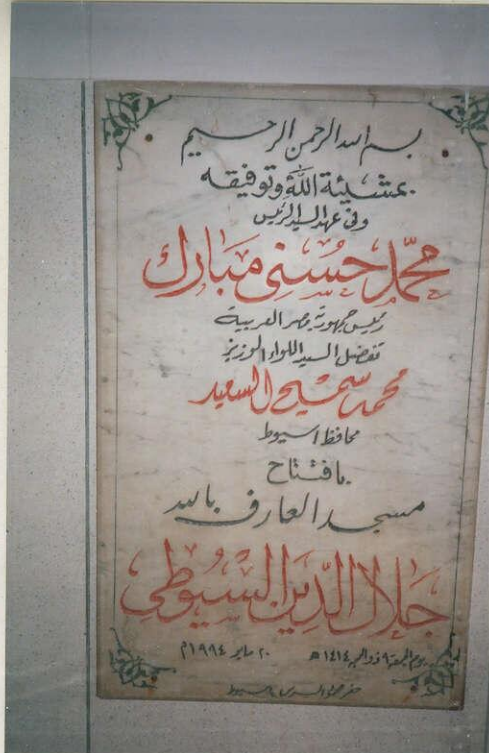 بسم الله الرحمن الرحيم
بمشيئة الله وتوفيقه
وفى عهد السيد الرئيس
محمد حسنى مبارك
رئيس جمهورية مصر العربية
تفضل السيد اللواء الوزير
محمد سميح السعيد
محافظ اسيوط
بافتتاح
مسجد العارف بالله
جلال الدين السيوطى
يوم الجمعة ٩ ذو الحجة ١٤١٤ هـ ٢٠ مايو ١٩٩٤ م